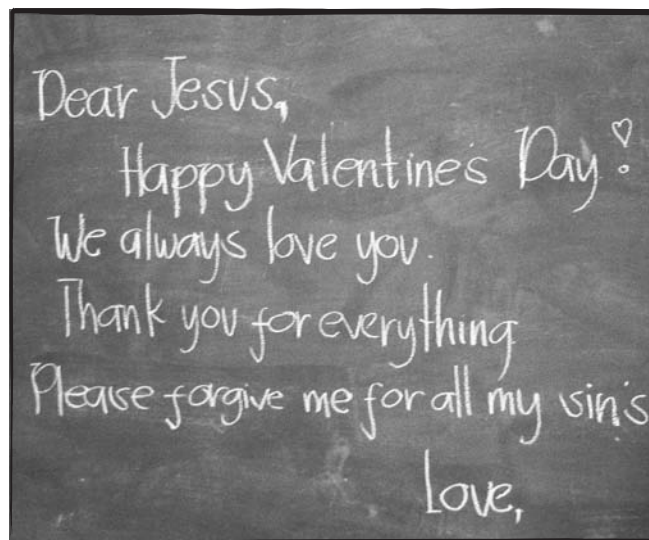 Dear Jesus,
Happy Valentine's Day!
We always love you.
Thank you for everything
Please forgive me for all my sin's
Love,